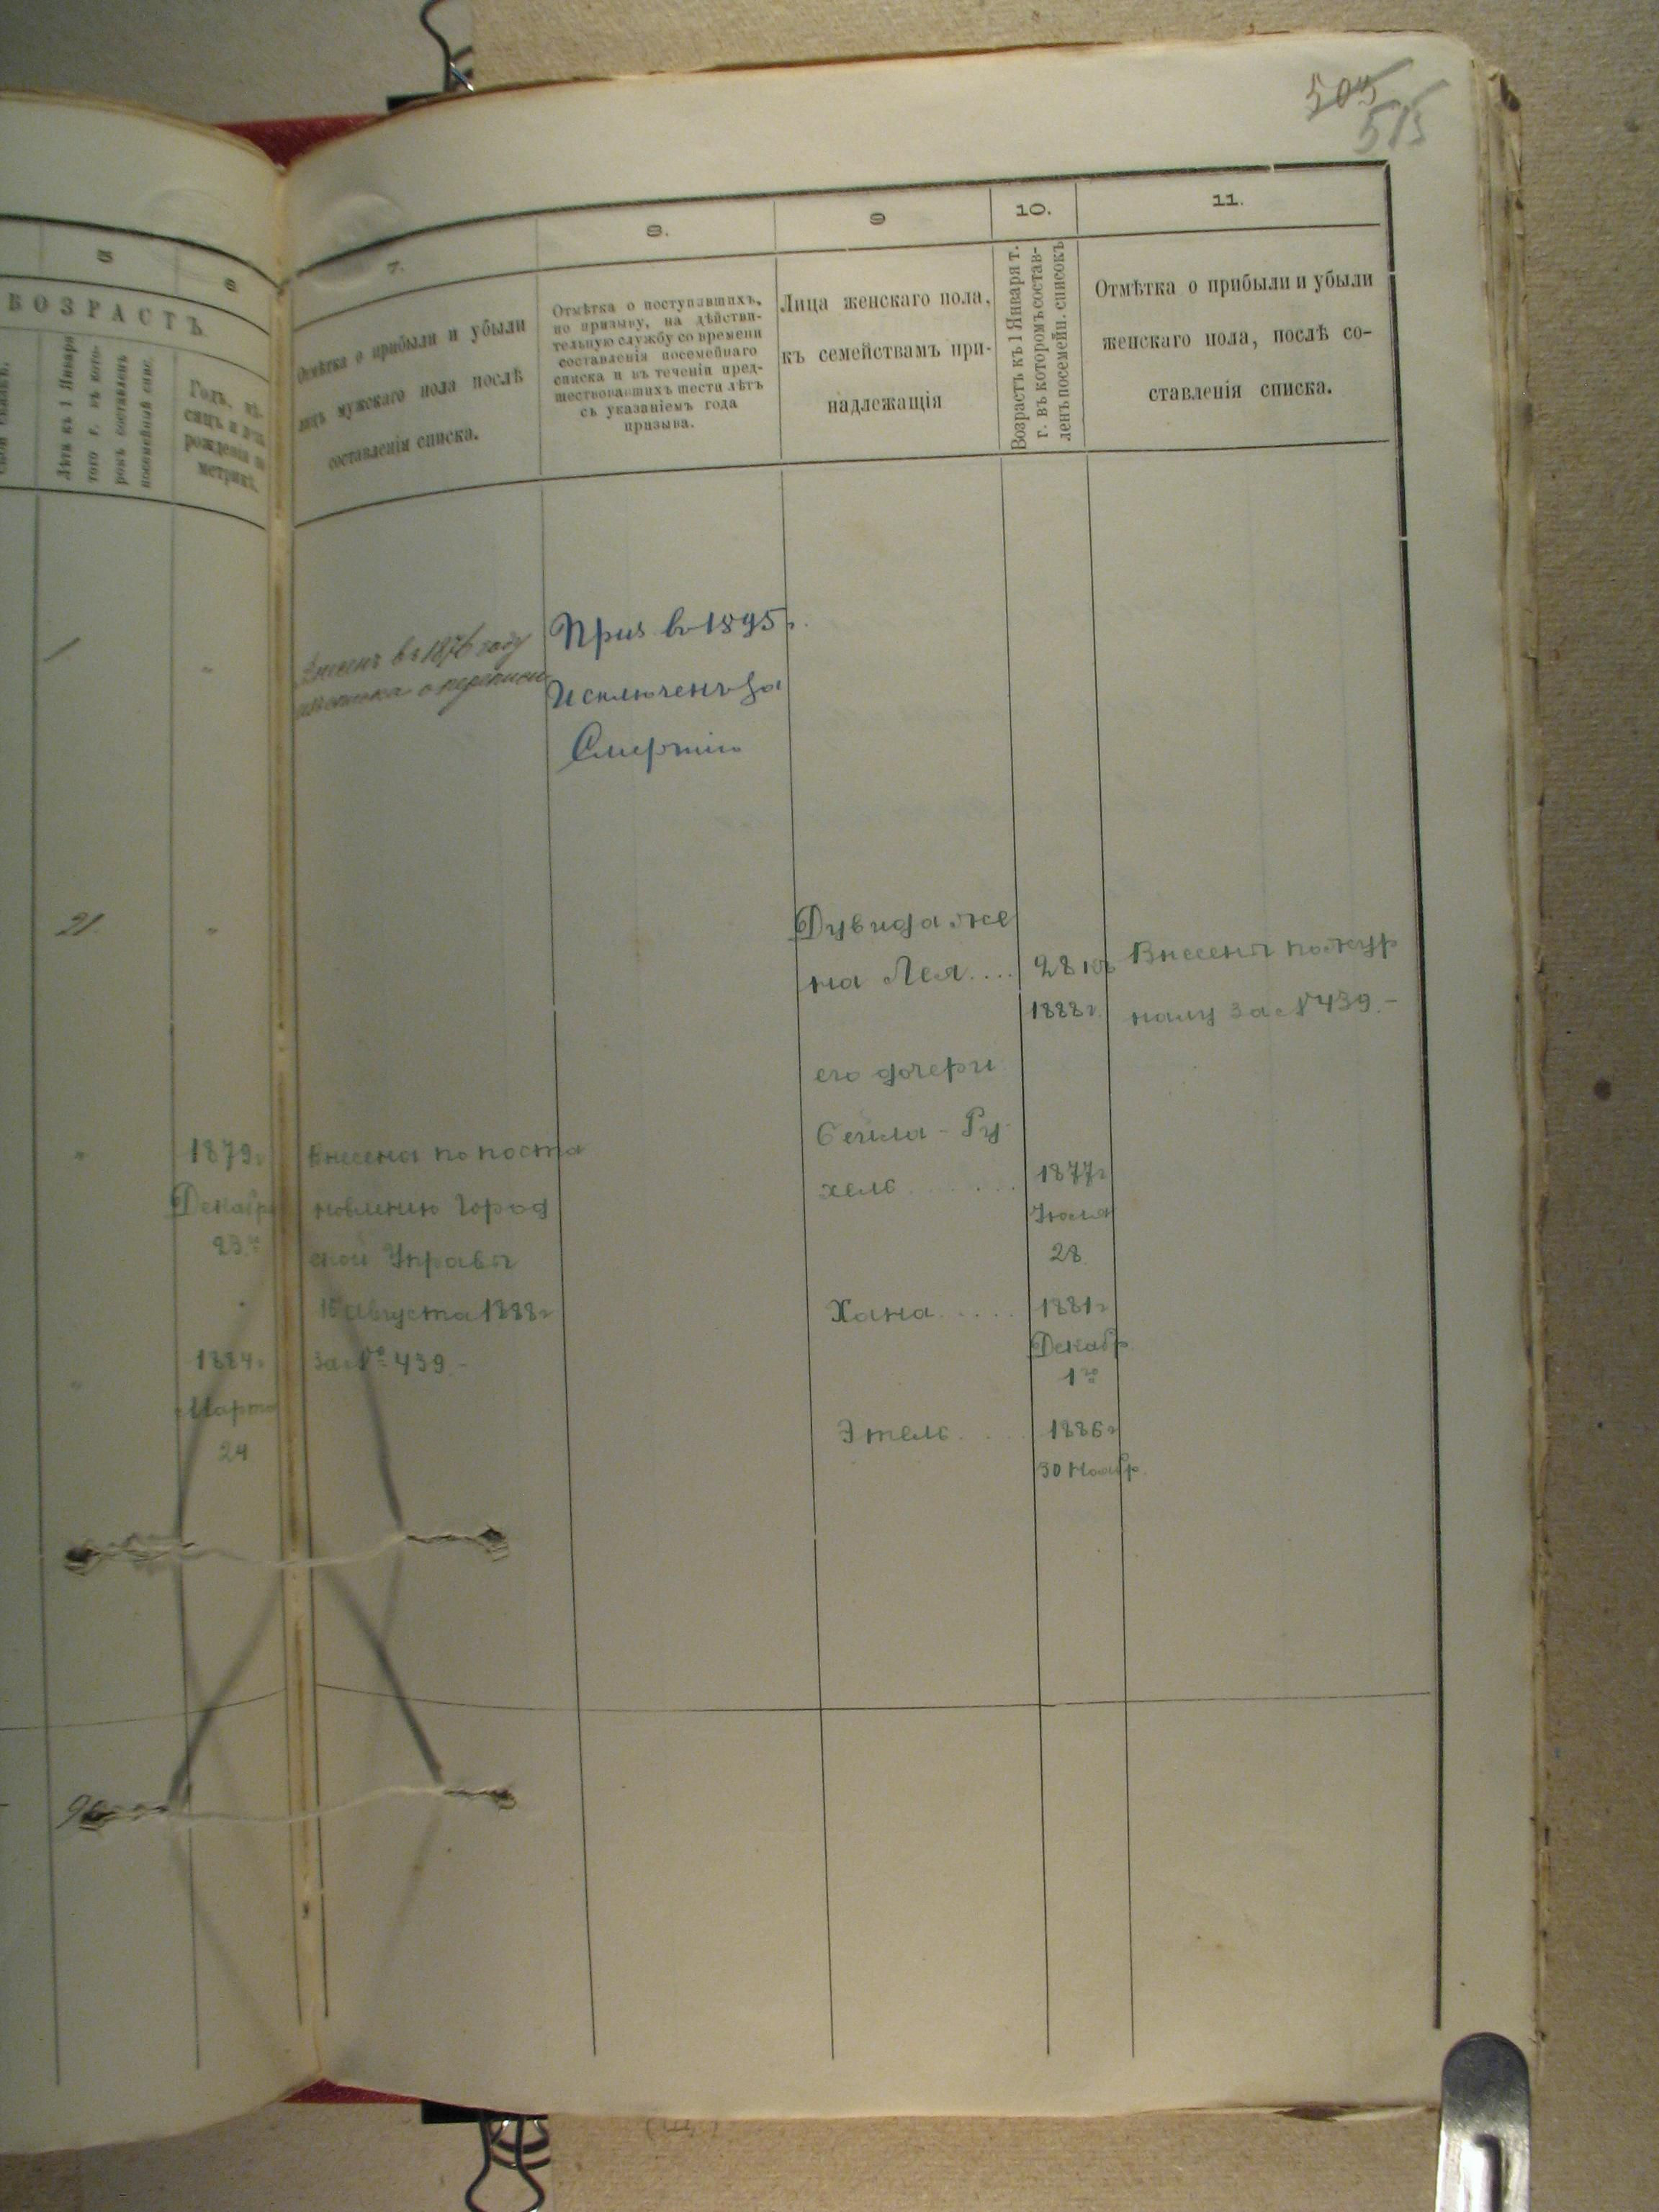 505
515
5
6
7.
8.
9
10.
11.
ВОЗРАСТЪ.
Лѣта къ 1 Января
того г. въ кото-
ромъ составленъ
посемейный спис.
Годъ, мѣ-
сяцъ и день
рожденія по
метрикѣ.
Отмѣтка о прибыли и убыли
лицъ мужскаго пола послѣ
составленія списка.
Отмѣтка о поступавшихъ,
по призыву, на дѣйстви-
тельную службу со времени
составленія посемейнаго
списка и въ теченіи пред-
шествовавшихъ шести лѣтъ
съ указаніемъ года
призыва.
Лица женскаго пола,
къ семействамъ при-
надлежащія
Возрастъ къ 1 Января т.
г. въ которомъ состав-
ленъ посемейн. списокъ
Отмѣтка о прибыли и убыли
женскаго пола, послѣ со-
ставленія списка.
въ 1876 году
о переписи
Приз въ 1895 г.
Исключенъ за
Смертію
21
Дувида же
на Лея....
28 къ
1888 г.
Внесены по жур
налу за № 439.-
его дочери
Сейла - Ру-
хель.......
1877 г
Іюля
28.
1879 г
Декабря
23го
Внесена по поста
новленію Город
ской Управы
15 Августа 1888 г
за № 439.-
Хана.....
1881 г
Декабр.
1го
1884 г
Марта
24
Этель....
1886 г
30 Ноябр.